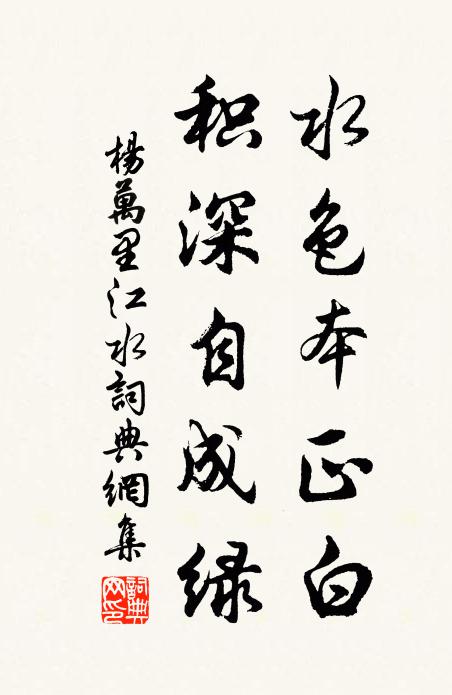 水色本正白
积深自成绿
楊萬里江水詞典網集
詞典
网印